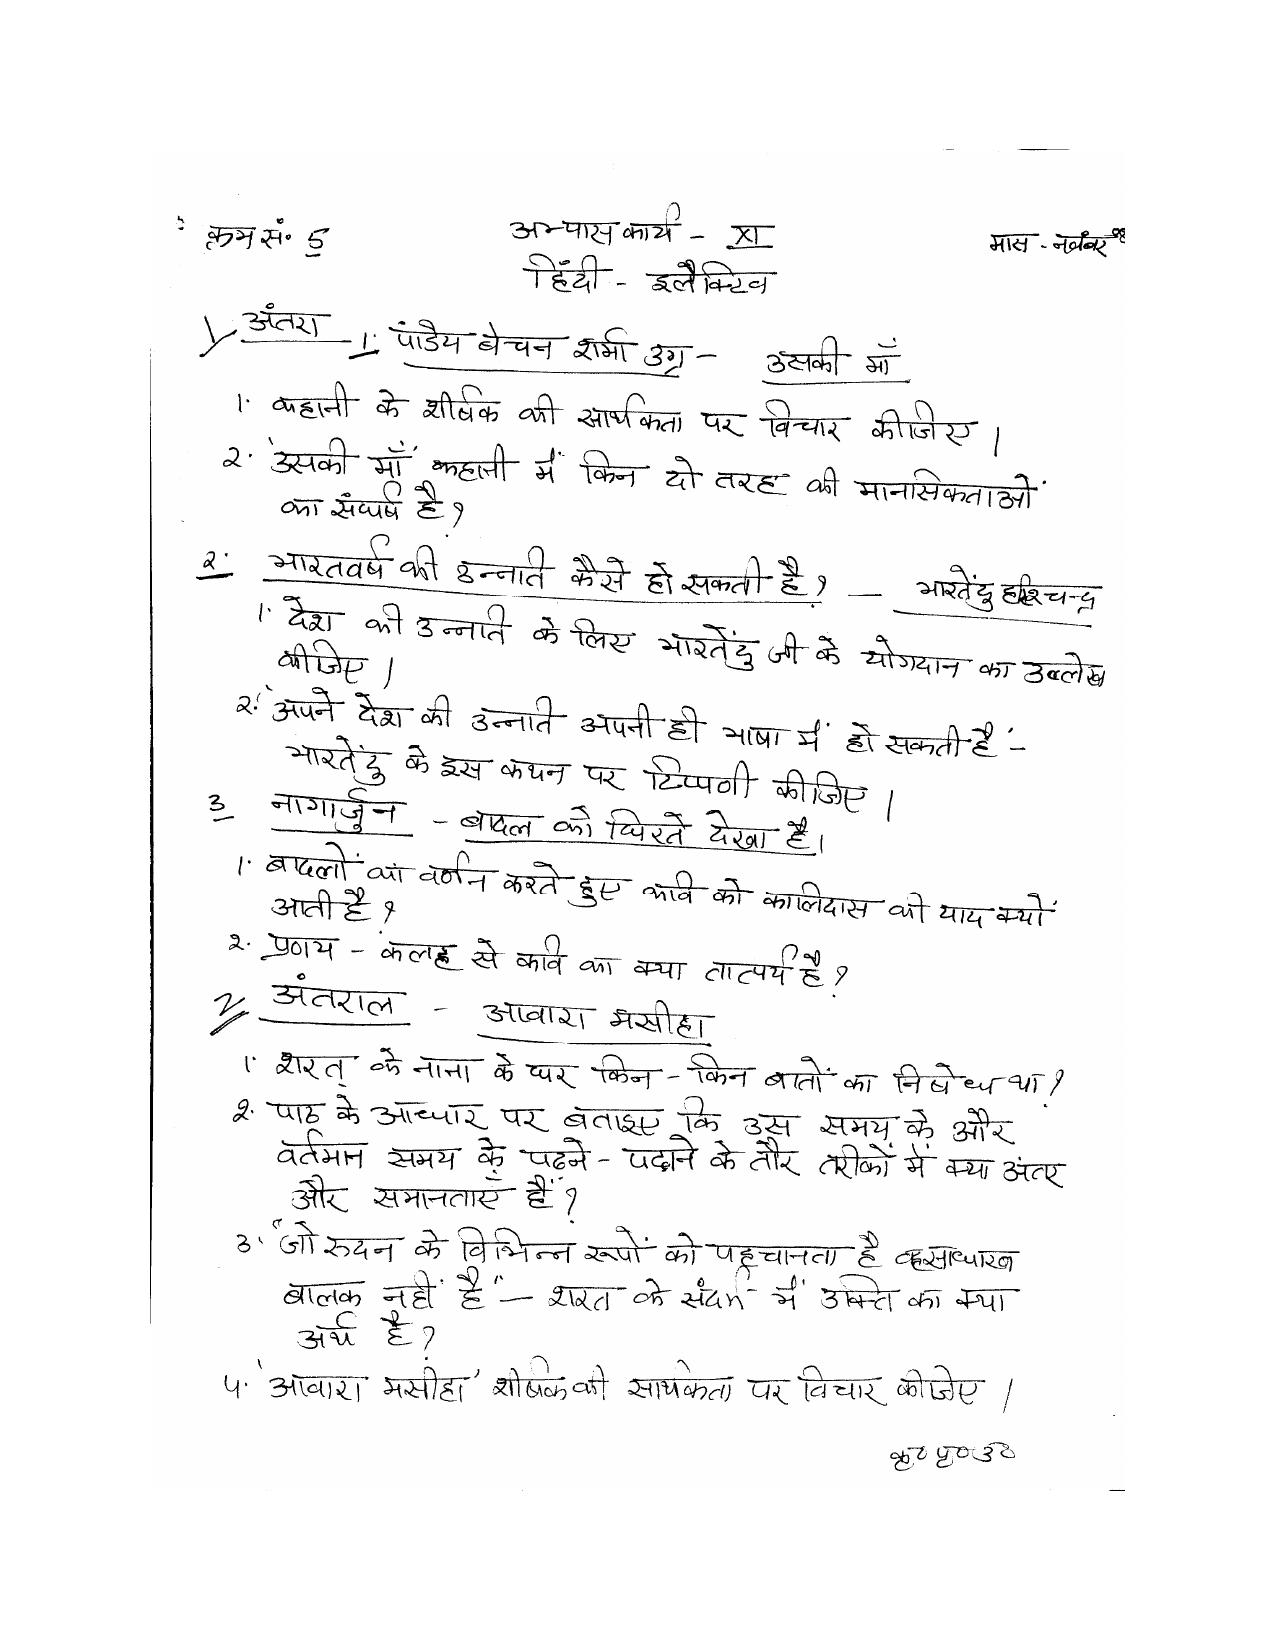 क्रम सं. 5
अभ्यास कार्य - XI
मास - नवंबर
हिंदी - इलैक्टिव
1/ अंतरा 1. पांडेय बेचन शर्मा उग्र - उसकी माँ
1. कहानी के शीर्षक की सार्थकता पर विचार कीजिए।
२. 'उसकी माँ' कहानी में किन दो तरह की मानसिकताओं
का संघर्ष है?
२. भारतवर्ष की उन्नति कैसे हो सकती है? - भारतेंदु हरिश्चन्द्र
1. देश की उन्नति के लिए भारतेंदु जी के योगदान का उल्लेख
कीजिए।
२. 'अपने देश की उन्नति अपनी ही भाषा में हो सकती है' -
भारतेंदु के इस कथन पर टिप्पणी कीजिए।
3 नागार्जुन - बादल को घिरते देखा है।
1. बादलों का वर्णन करते हुए कवि को कालिदास की याद क्यों
आती है?
२. प्रणय - कलह से कवि का क्या तात्पर्य है?
2/ अंतराल - आवारा मसीहा
1. शरत् के नाना के घर किन - किन बातों का निषेध था?
२. पाठ के आधार पर बताइए कि उस समय के और
वर्तमान समय के पढ़ने - पढ़ाने के तौर तरीकों में क्या अंतर
और समानताएँ हैं?
3. "जो रुदन के विभिन्न रूपों को पहचानता है वह साधारण
बालक नहीं है" - शरत के संदर्भ में उक्ति का क्या
अर्थ है?
५. 'आवारा मसीहा' शीर्षक की सार्थकता पर विचार कीजिए।
कृ० पृ० उ०